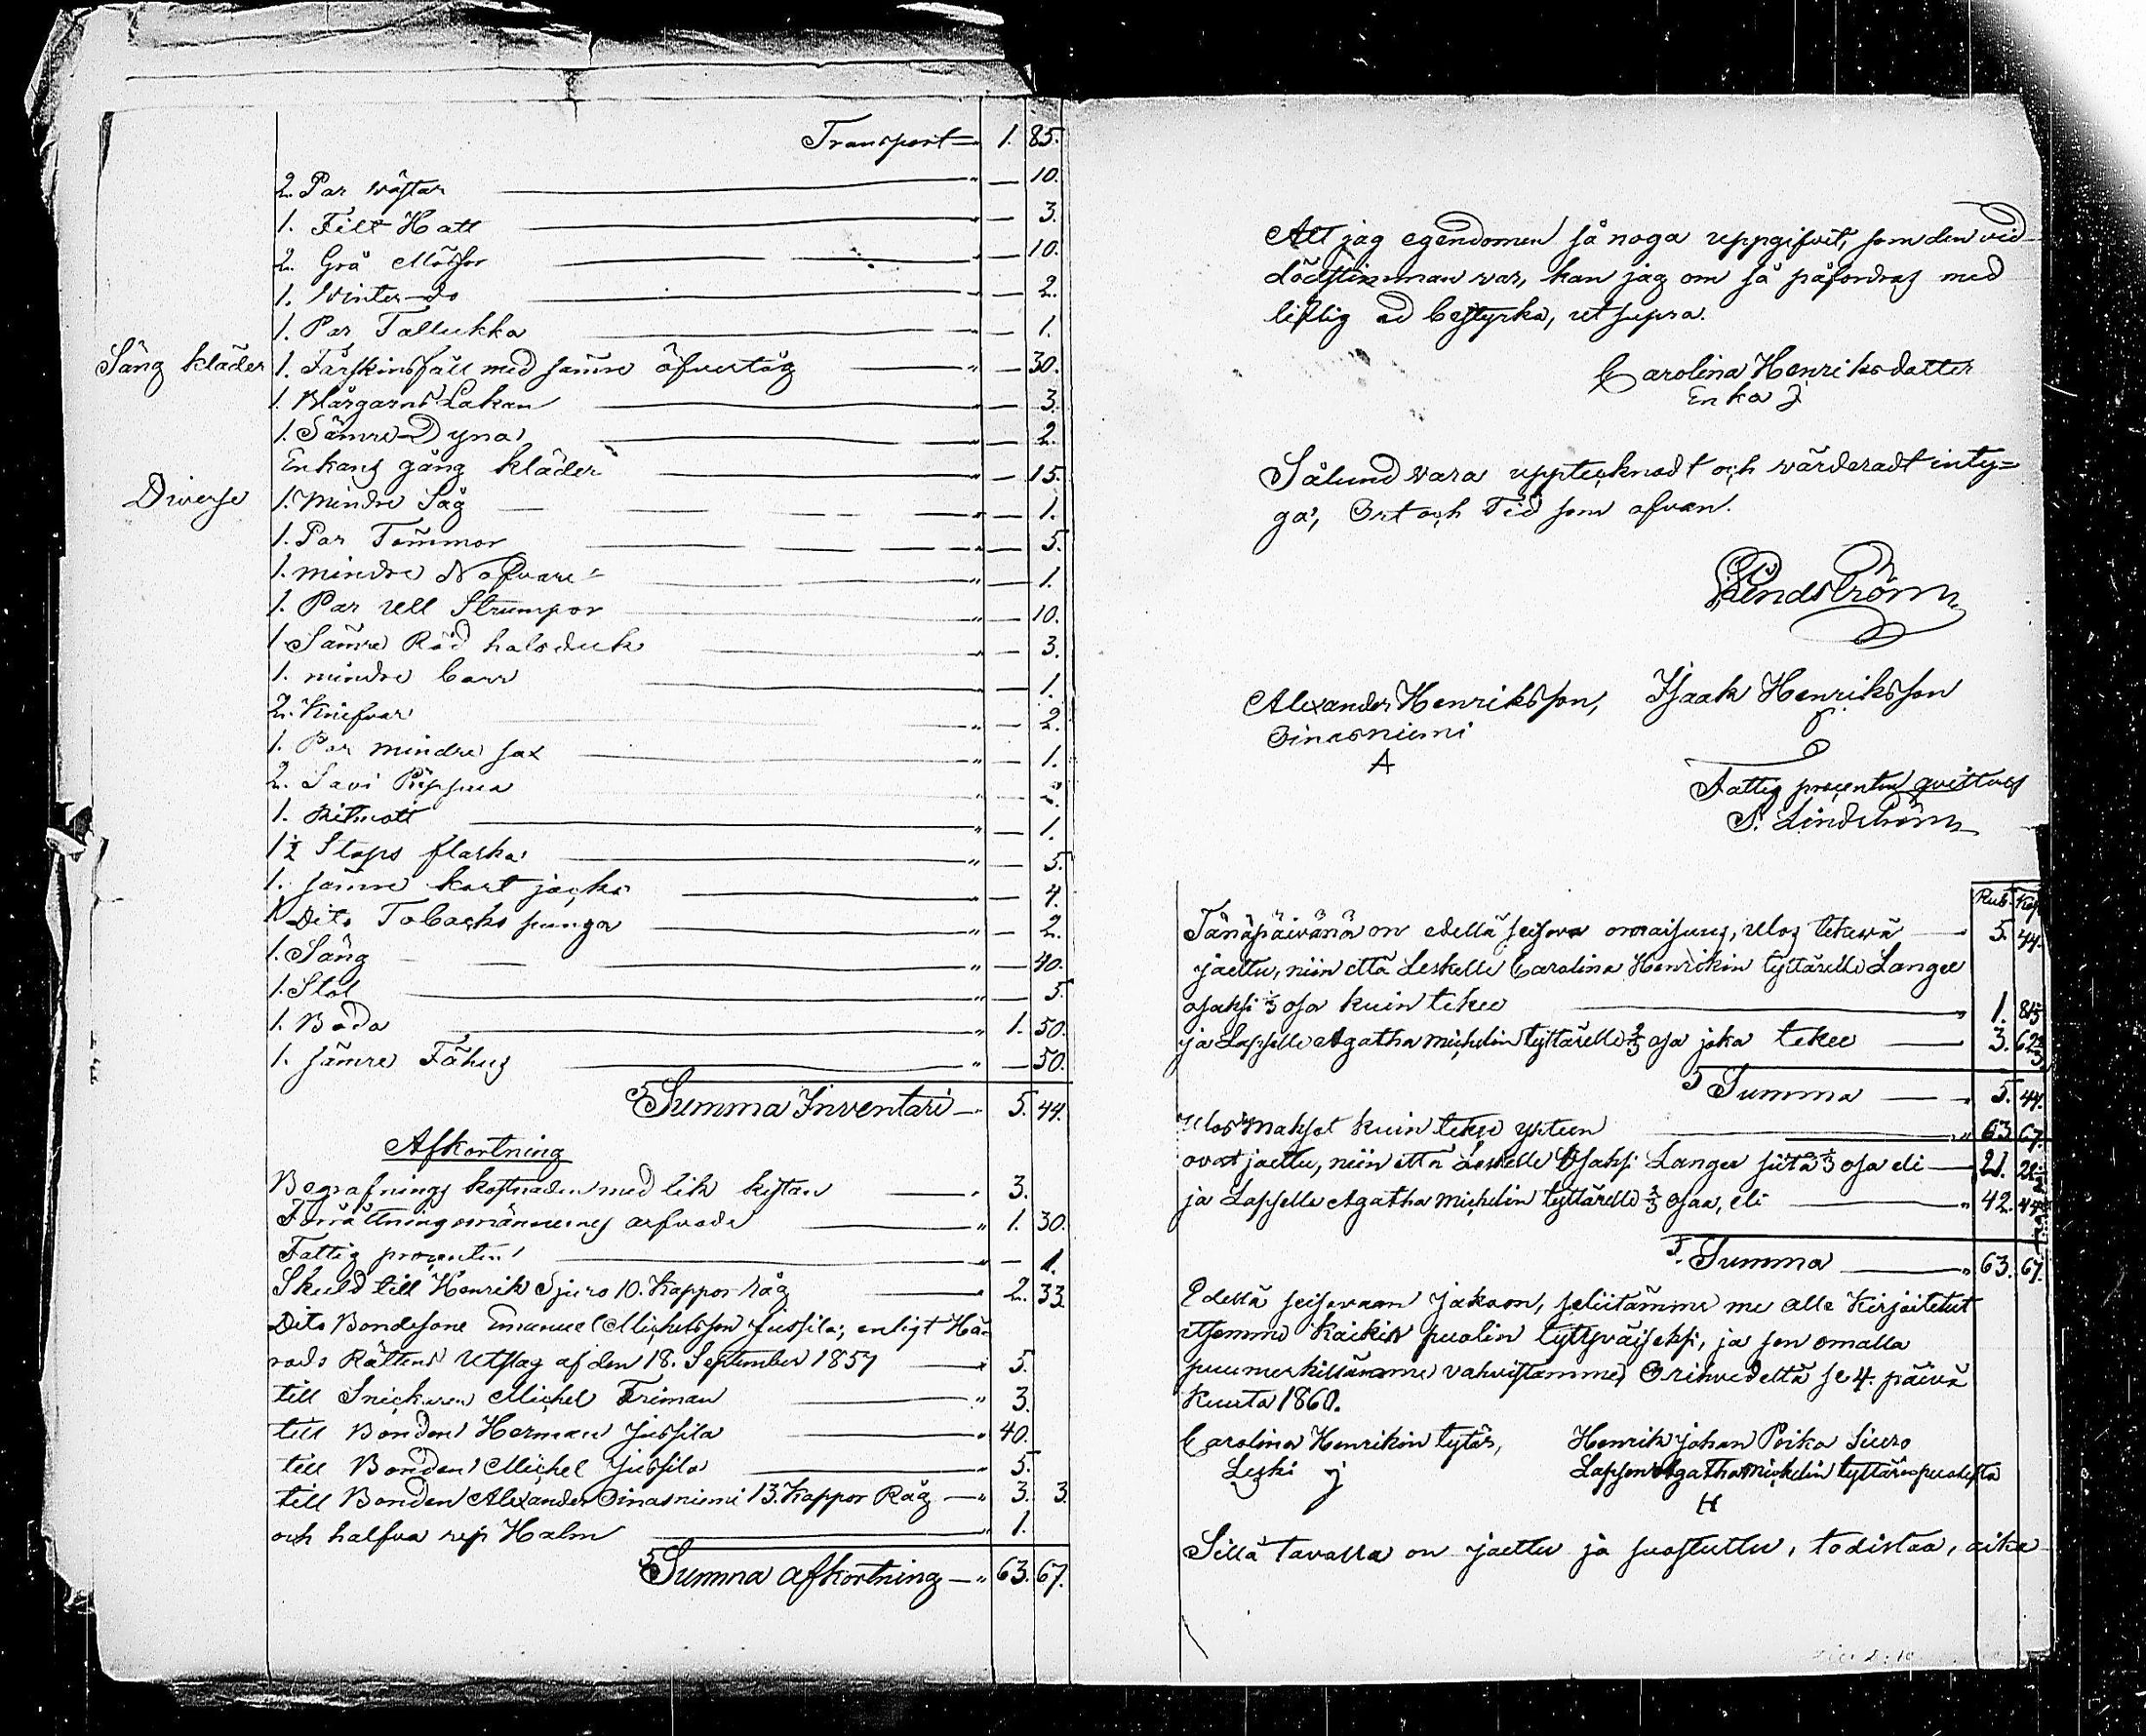 Transport — 1. 85.
2. Par wåstar — 10.
1. Filt Hatt — 3.
2. Grå Mössor — 10.
1. Winter do — 2.
1. Par Tallukka — 1.
Säng kläder 1. Fårskinsfäll med sämre öfvertåg — 30.
1. Blårgarns Lakan — 3.
1. Sämre Dyna — 2.
Enkans gång kläder — 15.
Diverse 1. Mindre Såg — 1.
1. Par Tömmor — 5.
1. mindre Nafvare — 1.
1. Par Ull Strumpor — 10.
1 Sämre Röd halsduk — 3.
1. mindre Carr — 1.
2. Knifvar — 2.
1. Par mindre sax — 1.
2. Savi Piippua — 2.
1. — 1.
1 ½ Stops flaska — 5.
1. sämre kort jacka — 4.
1 Dito Tobacks punga — 2.
1. Säng — 40.
1. Stol — 5.
1. Boda — 1. 50.
1. sämre Fähus — 50.
Summa Inventari — 5. 44.
Afkortning
Begrafnings kostnaden med lik kistan — 3.
Förrättningsmännernes arfvode — 1. 30.
Fattig procenten — 1.
Skuld till Henrik Sjuro 10. Kappor råg — 2. 33
Dito Bondesone Emanuel Michelsson Jussila, enligt Hä-
rads Rättens Utslag af den 18. September 1857 — 5.
till Snickaren Michel Friman — 3.
till Bonden Herman Jussila — 40.
till Bonden Michel Jussila — 5.
till Bonden Alexander Oinasniemi 13. Kappor Råg — 3. 3.
och halfva rep Halm — 1.
Summa afkortning — 63. 67.
Att jag egendomen så noga uppgifvit, som den vid
dödstimman var, kan jag om så påfordras med
liflig ed bestyrka, ut supra.
Carolina Henriksdatter
Enka J
Sålund vara upptecknadt och värderadt inty=
ga, Ort och Tid som ofvan.
S. Lindström
Alexander Henriksson, Isaak Henriksson
Oinasniemi
A
Fattig procenten qvitteras
S. Lindström
Rub. Kop.
Tänäpäivänä on edellä seisova omaisuus, ulos tekevä — 5. 44.
jaettu, niin että Leskelle Carolina Henrikin tyttärelle Langee
osaksi ⅓ osa kuin tekee — 1. 81⅓
ja Lapselle Agatha Michelin tyttärelle ⅔ osa joka tekee — 3. 62⅔
Summa — 5. 44.
Ulos maksot kuin tekee yhteen — 63 67.
ovat jaettu, niin että Leskelle Osaksi Langee siitä ⅓ osa eli — 21. 22⅓
ja Lapselle Agatha Michelin tyttärelle ⅔ osaa, eli — 42. 44⅔
Summa — 63. 67.
Edellä seisovaan jakoon, seliitämme me alle kirjoitetut
itsemme kaikin puolin tyttyväiseksi, ja sen omalla
puumerkillämme vahvistamme, Orihvedellä se 4. päivä
Kuuta 1860.
Carolina Henrikin tytär, Henrik Johan Poika Siuro
Leski J Lapsen Agatha Michelin tyttären puolesta
H
Sillä tavalla on jaettu ja suostuttu, todistaa, aika